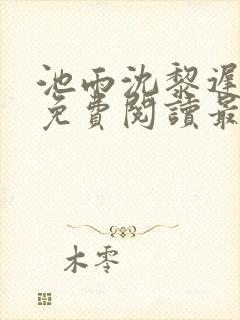 池雨沈黎遲
免費閱讀最
木零